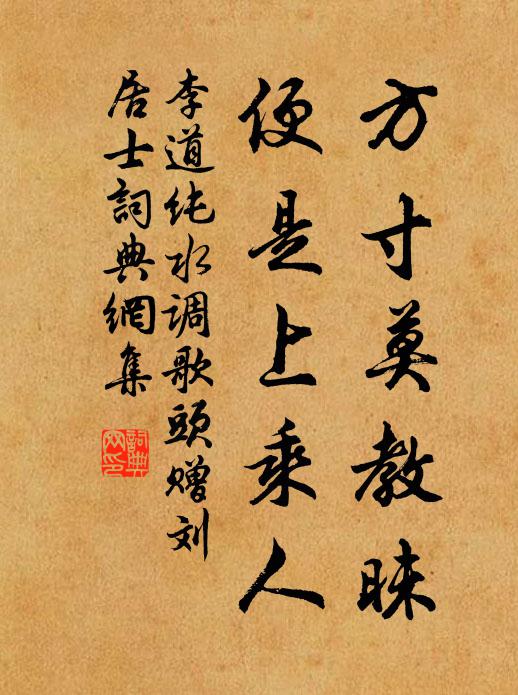 方寸莫教昧
便是上乘人
李道纯水调歌頭赠刘
居士詞典網集
詞典
网印